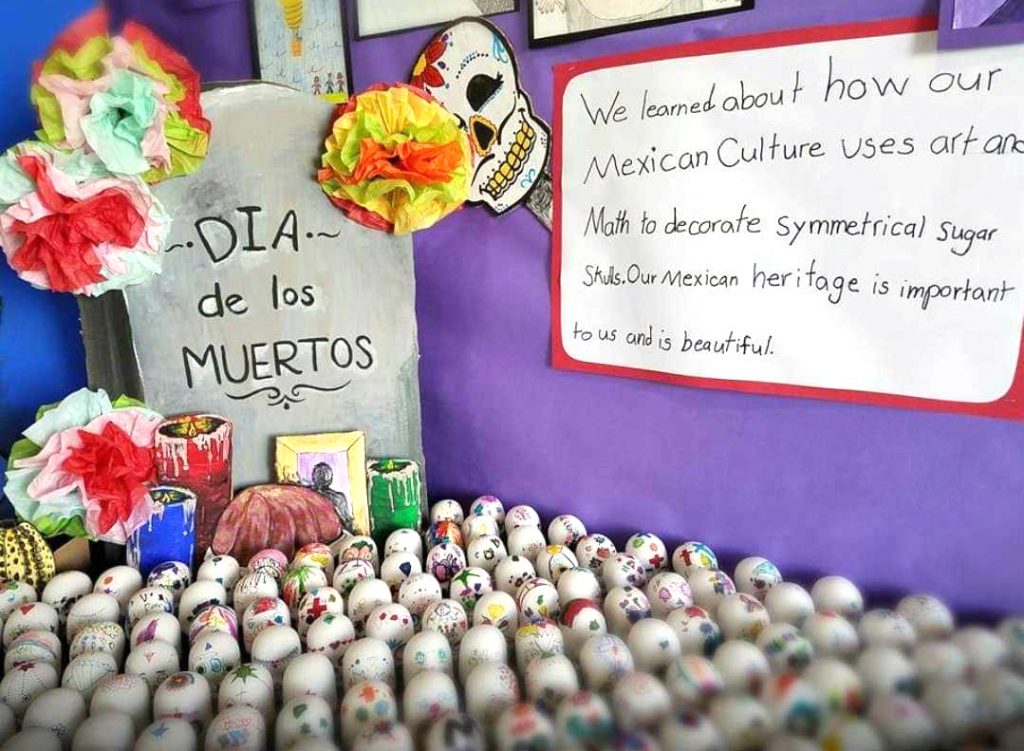 ~.DIA.~
de los
MUERTOS
We learned about how our
Mexican Culture uses art and
Math to decorate symmetrical sugar
Skulls. Our Mexican heritage is important
to us and is beautiful.